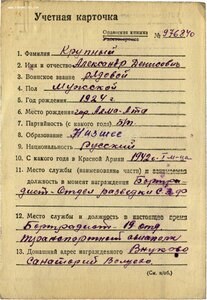 Учетная карточка
Орденская книжка
№ 976840
1. Фамилия Крупный
2. Имя и отчество Александр Денисович
3. Воинское звание рядовой
4. Пол Мужской
5. Год рождения 1924 г.
6. Место рождения гор. Алма-Ата
7. Партийность (с какого года) б/п
8. Образование Низшее
9. Национальность Русский
10. С какого года в Красной Армии 1942 г.
11. Место службы (наименование части) и занимаемая
должность в момент награждения
дист-Отдел разведки
12. Место службы и должность в настоящее время
Бортрадист- 19 отд.
транспортный авиаполк
13. Домашний адрес награжденного Внуково
Санаторий
(См. н/об.)